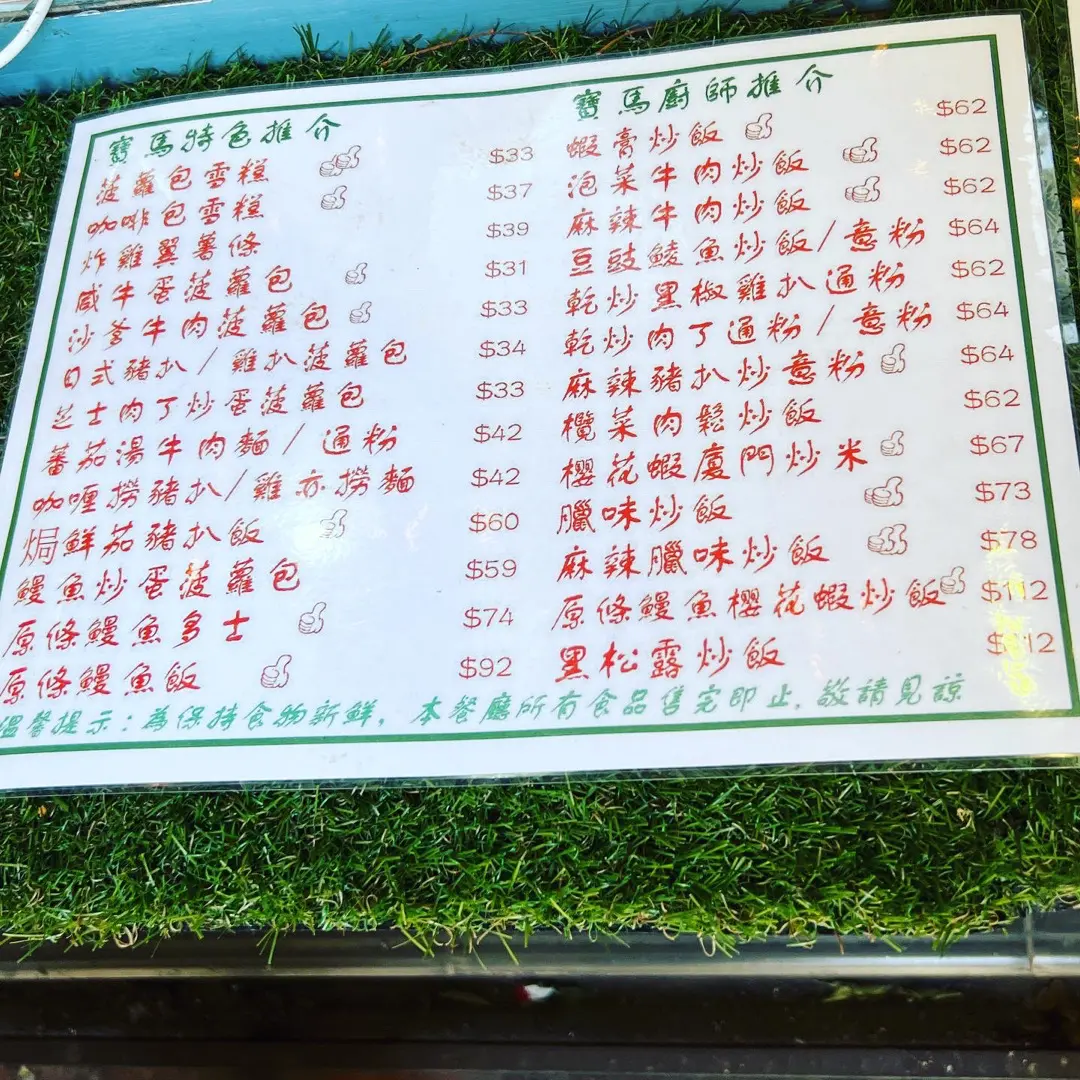 寶馬特色推介
菠蘿包雪糕 $33
咖啡包雪糕 $37
炸雞翼薯條 $39
咸牛蛋菠蘿包 $31
沙爹牛肉菠蘿包 $33
日式豬扒/雞扒菠蘿包 $34
芝士肉丁炒蛋菠蘿包 $33
蕃茄湯牛肉麵/通粉 $42
咖喱撈豬扒/雞亦撈麵 $42
焗鮮茄豬扒飯 $60
鰻魚炒蛋菠蘿包 $59
原條鰻魚多士 $74
原條鰻魚飯 $92
寶馬廚師推介
蝦膏炒飯 $62
泡菜牛肉炒飯 $62
麻辣牛肉炒飯 $62
豆豉鯪魚炒飯/意粉 $64
乾炒黑椒雞扒通粉 $62
乾炒肉丁通粉/意粉 $64
麻辣豬扒炒意粉 $64
欖菜肉鬆炒飯 $62
櫻花蝦廈門炒米 $67
臘味炒飯 $73
麻辣臘味炒飯 $78
原條鰻魚櫻花蝦炒飯 $112
黑松露炒飯 $112
溫馨提示:為保持食物新鮮,本餐廳所有食品售完即止.敬請見諒